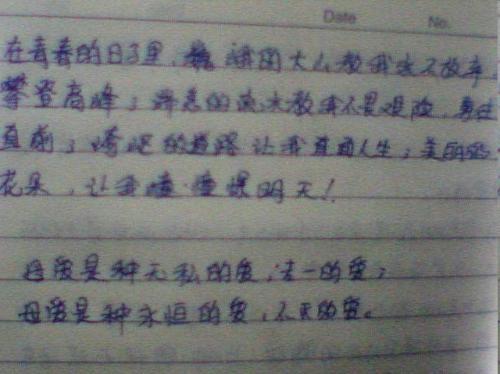 Date No.
在青春的日子里,讲的大山教我永不放弃
攀登高峰;湍急的流水教我不畏艰险,勇往
直前;崎岖的道路让我直面人生;美丽的
花朵,让我憧憬明天!
母爱是种无私的爱,法一的爱;
母爱是种永恒的爱,不灭的爱。